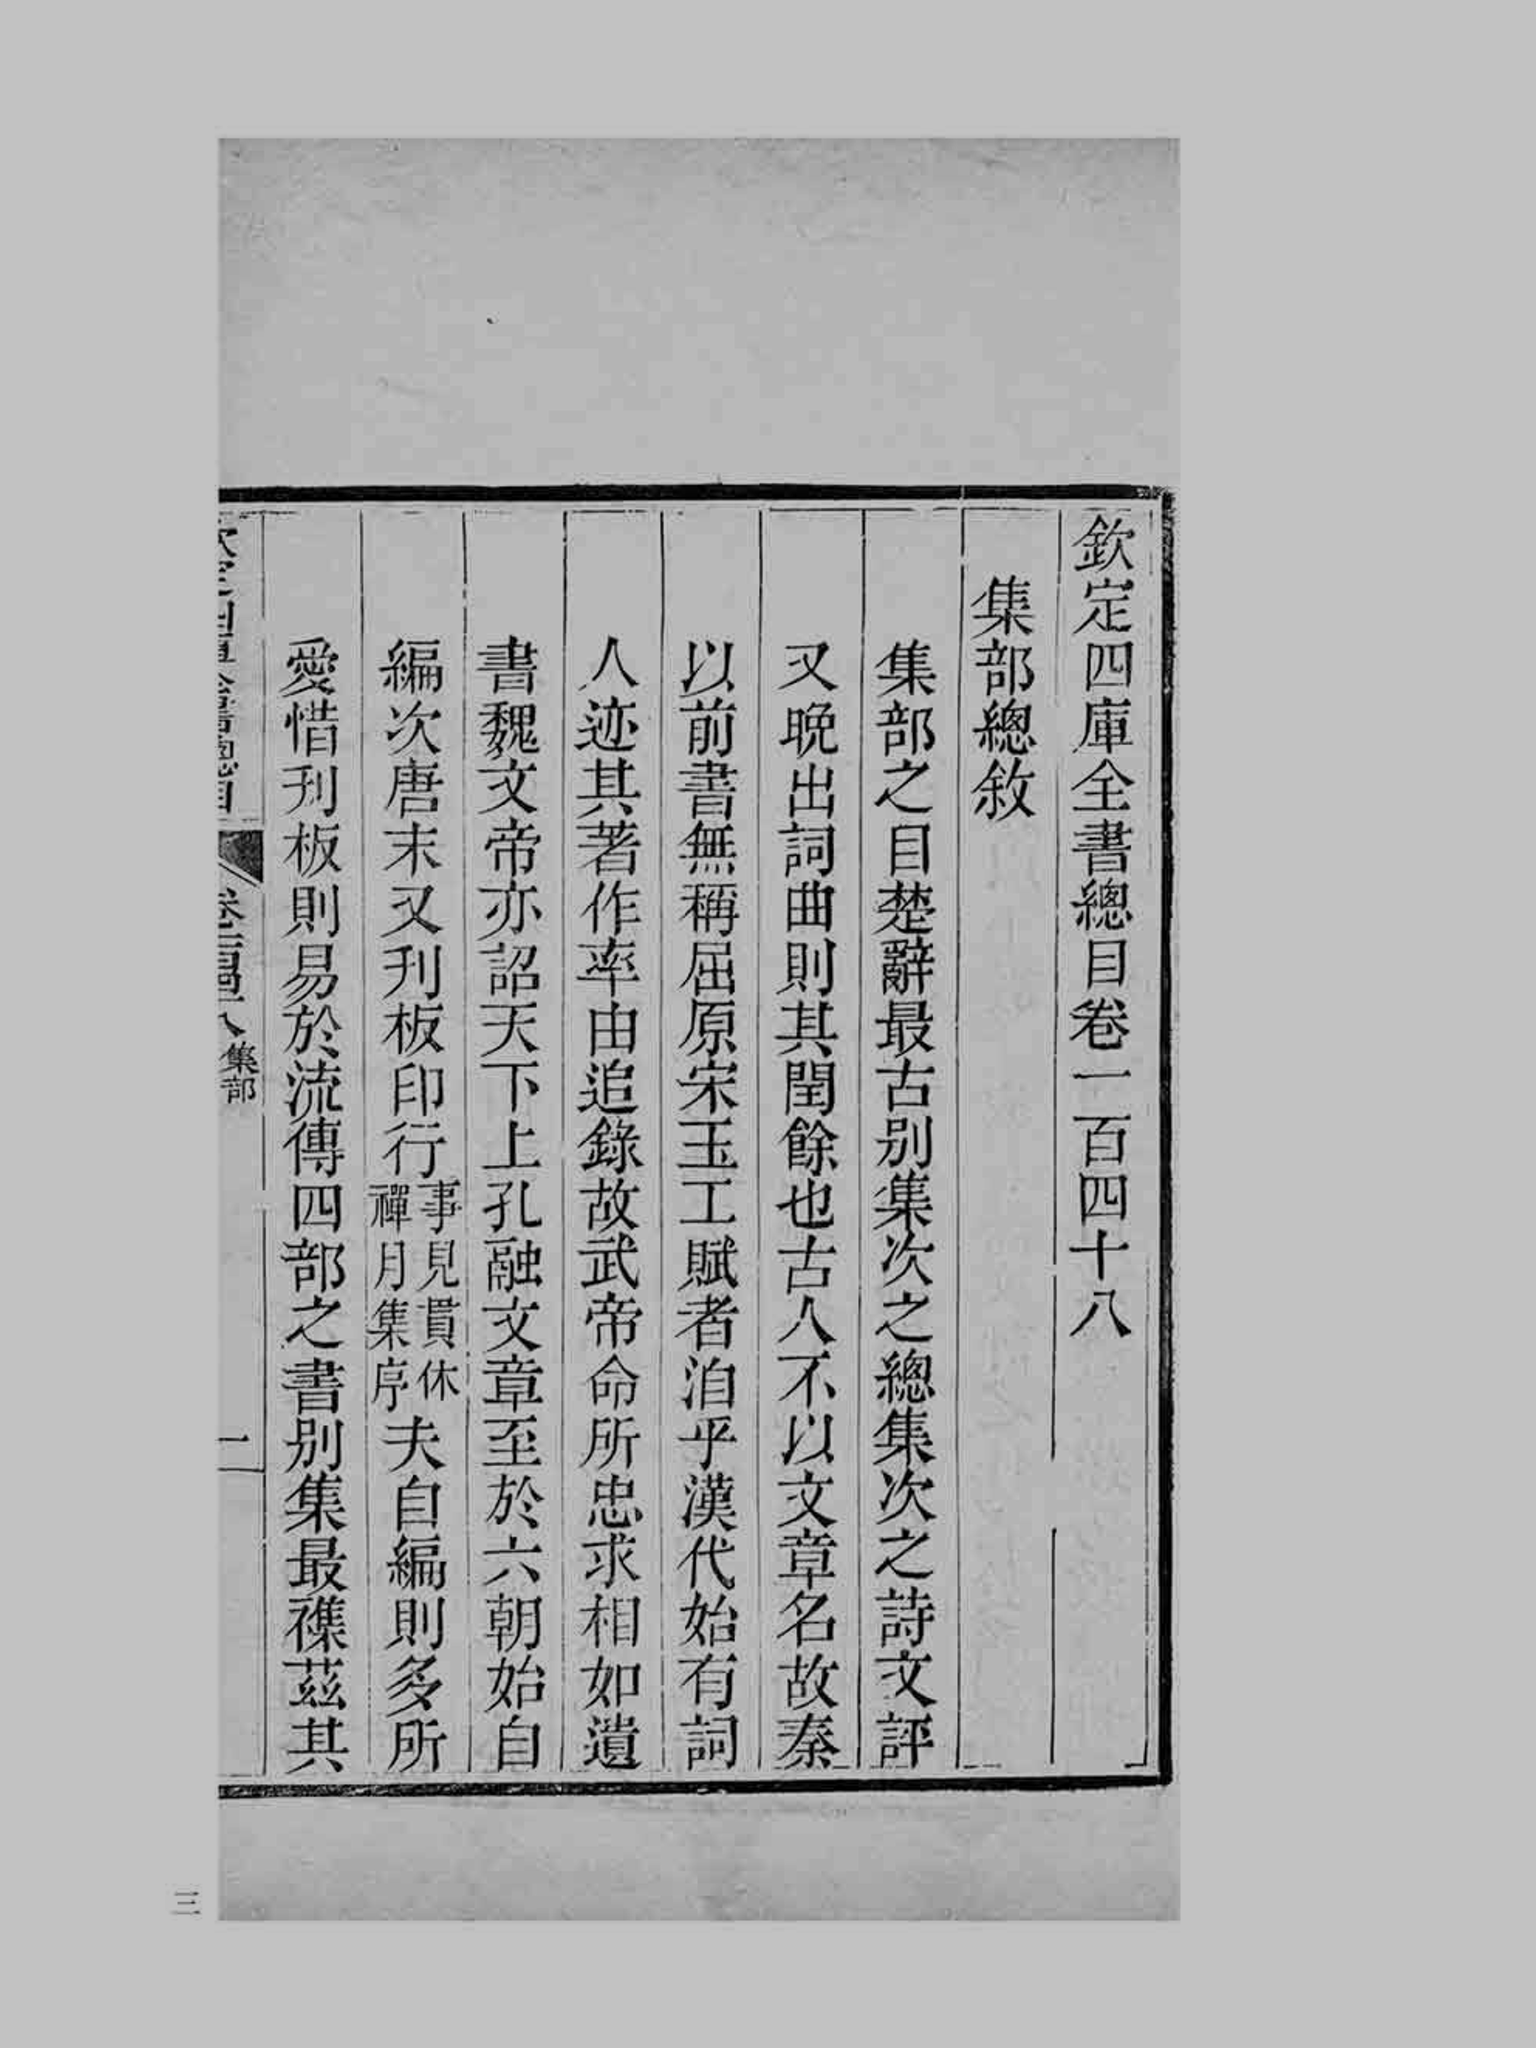 欽定四庫全書總目卷一百四十八
集部總敘
集部之目楚辭最古别集次之總集次之詩文評
又晚出詞曲則其閏餘也古人不以文章名故秦
以前書無稱屈原宋玉工賦者洎乎漢代始有詞
人迹其著作率由追錄故武帝命所忠求相如遺
書魏文帝亦詔天下上孔融文章至於六朝始自
編次唐末又刋板印行事見貫休禪月集序夫自編則多所
愛惜刋板則易於流傳四部之書别集最襍茲其
欽定四庫全書總目
卷一百四十八
集部
一
三